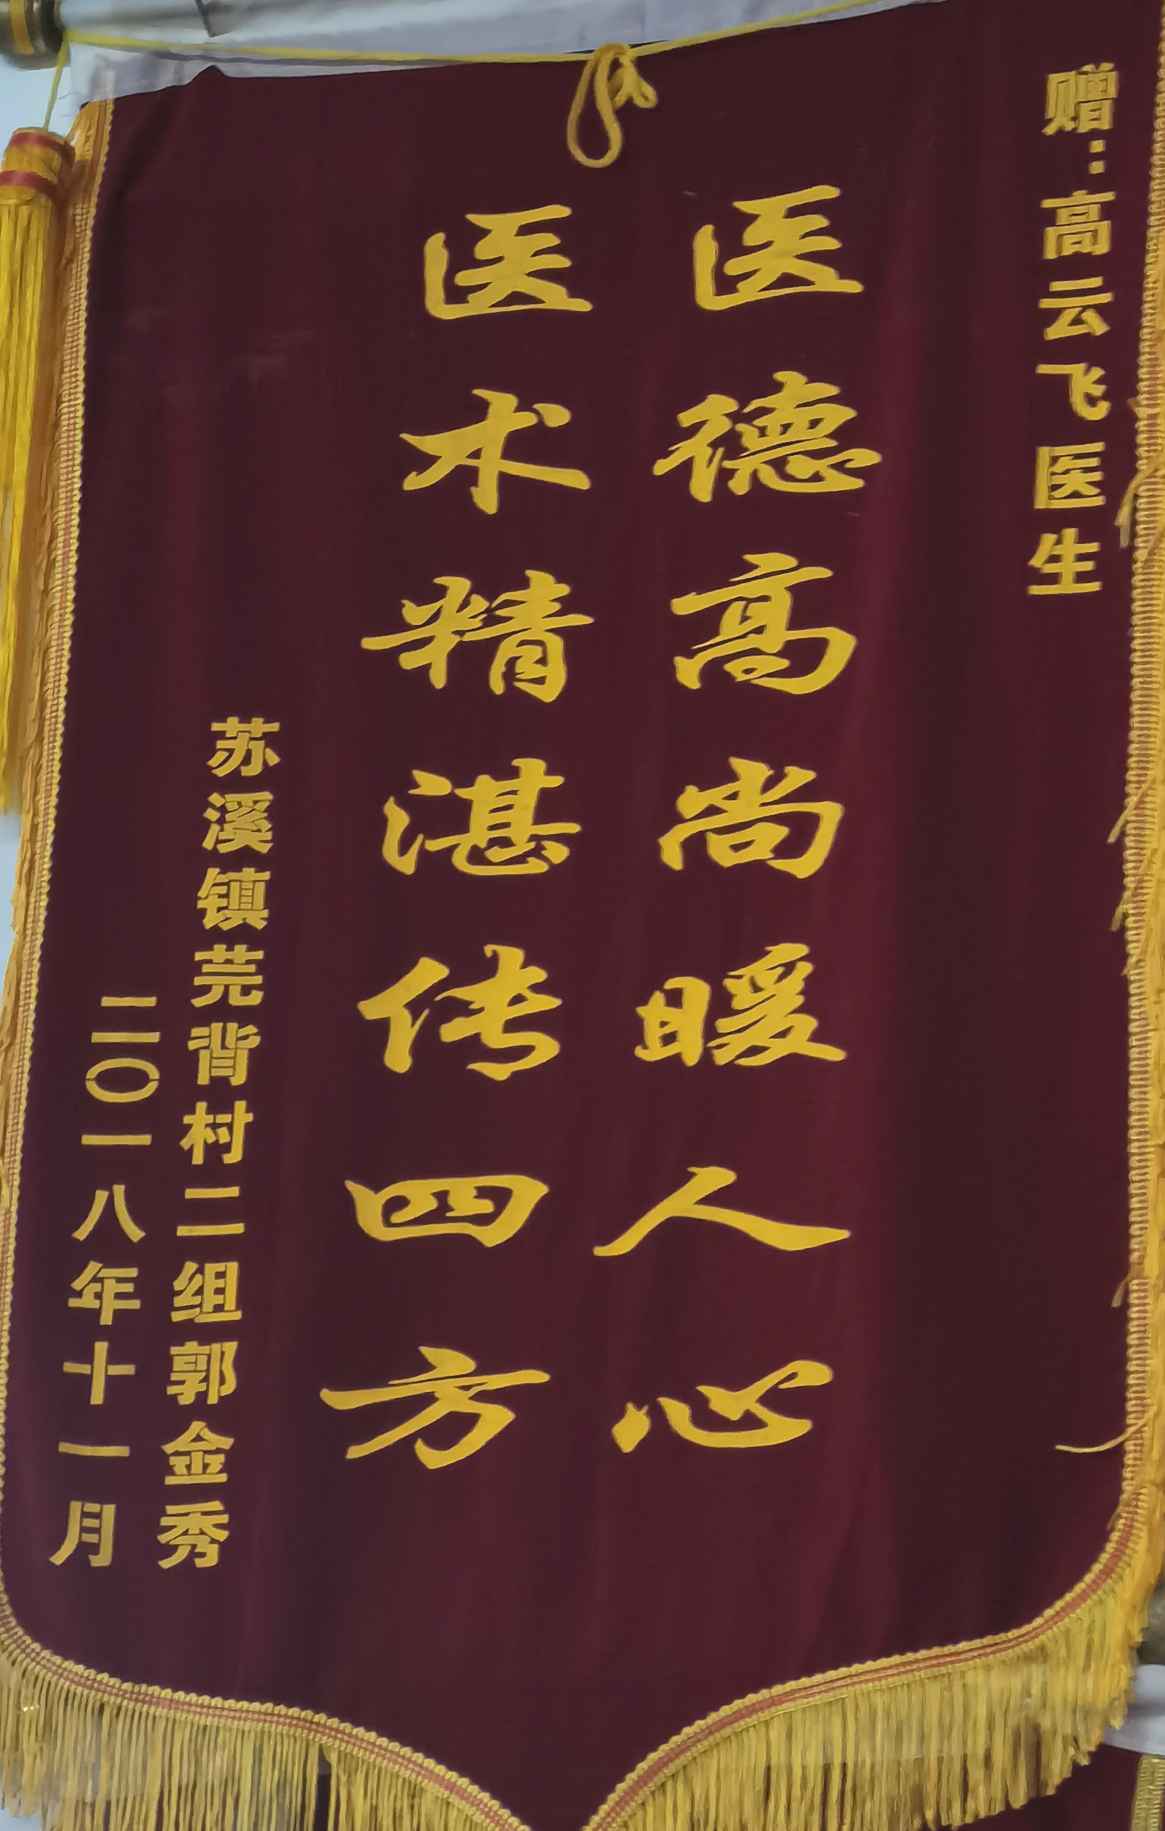 赠：高云飞医生
医德高尚暖人心
医术精湛传四方
苏溪镇芫背村二组郭金秀
二〇一八年十一月